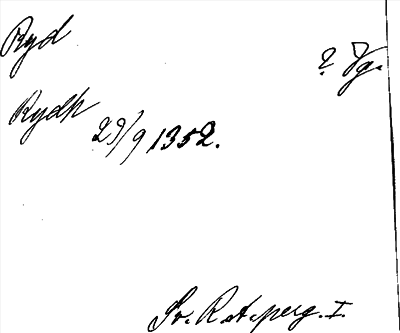 Ryd
? Vg.
Rydh
29/9 1352.
Sv. R.A. perg. I.